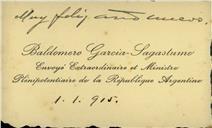 Muy feliz año nuevo.
Baldomero Garcia-Sagastume
Envoyé Extraordinaire et Ministre
Plénipotentiaire de la République Argentine
1. 1. 915.